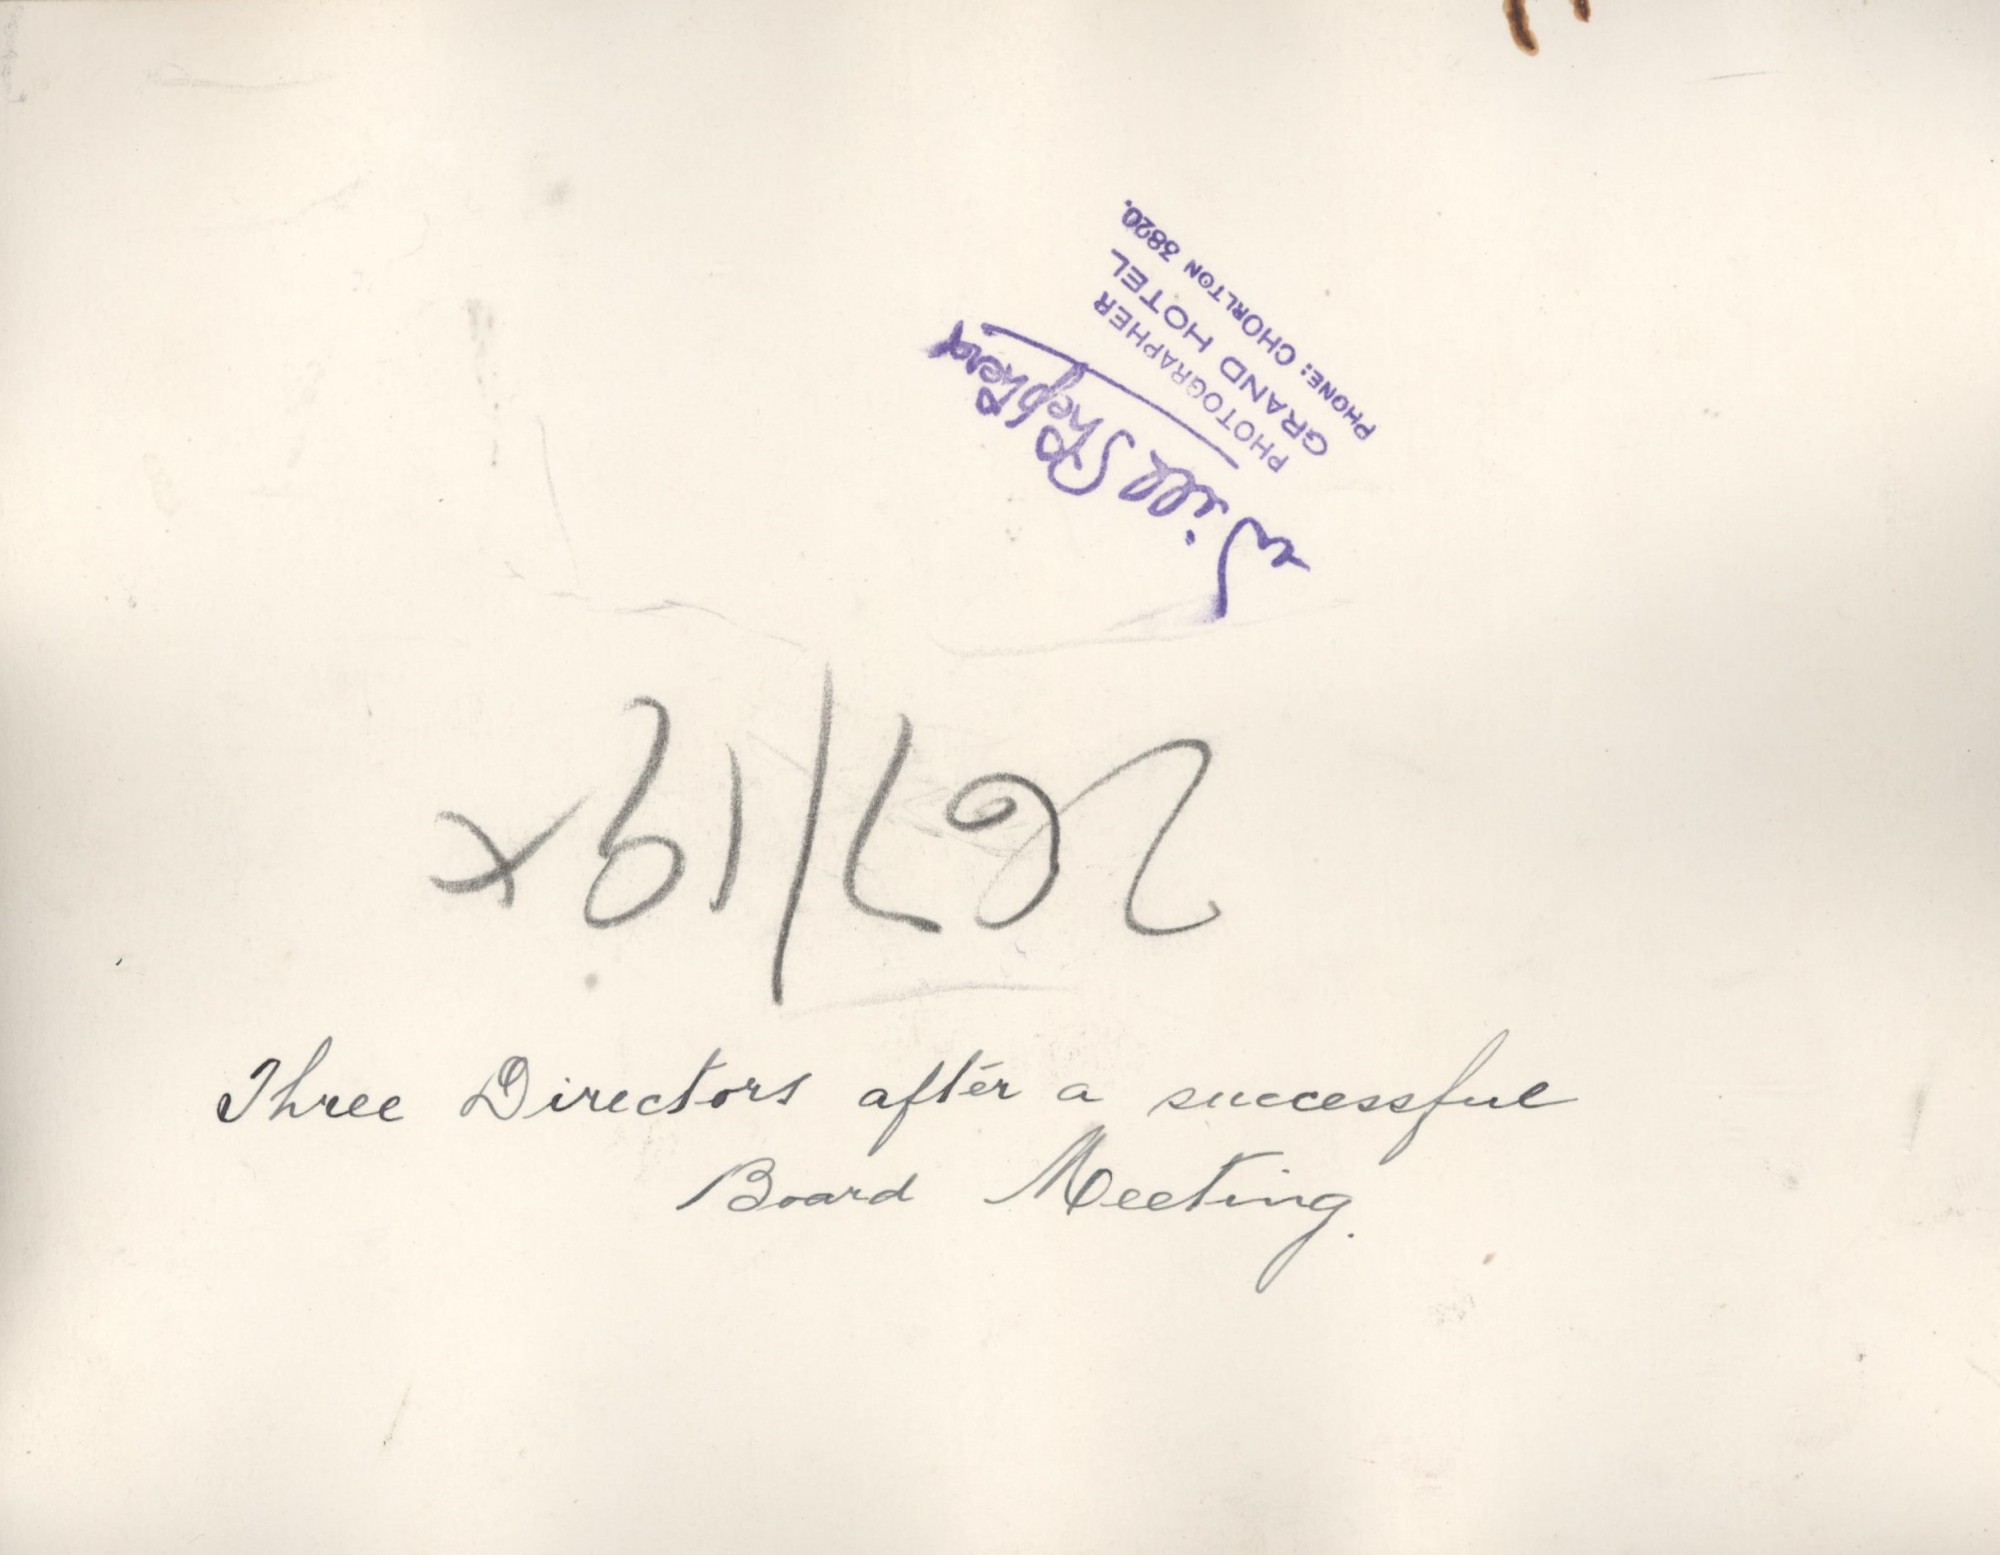 Will Shepherd
PHOTOGRAPHER
GRAND HOTEL
PHONE: CHORLTON 3820.
Three Directors after a successful
Board Meeting.